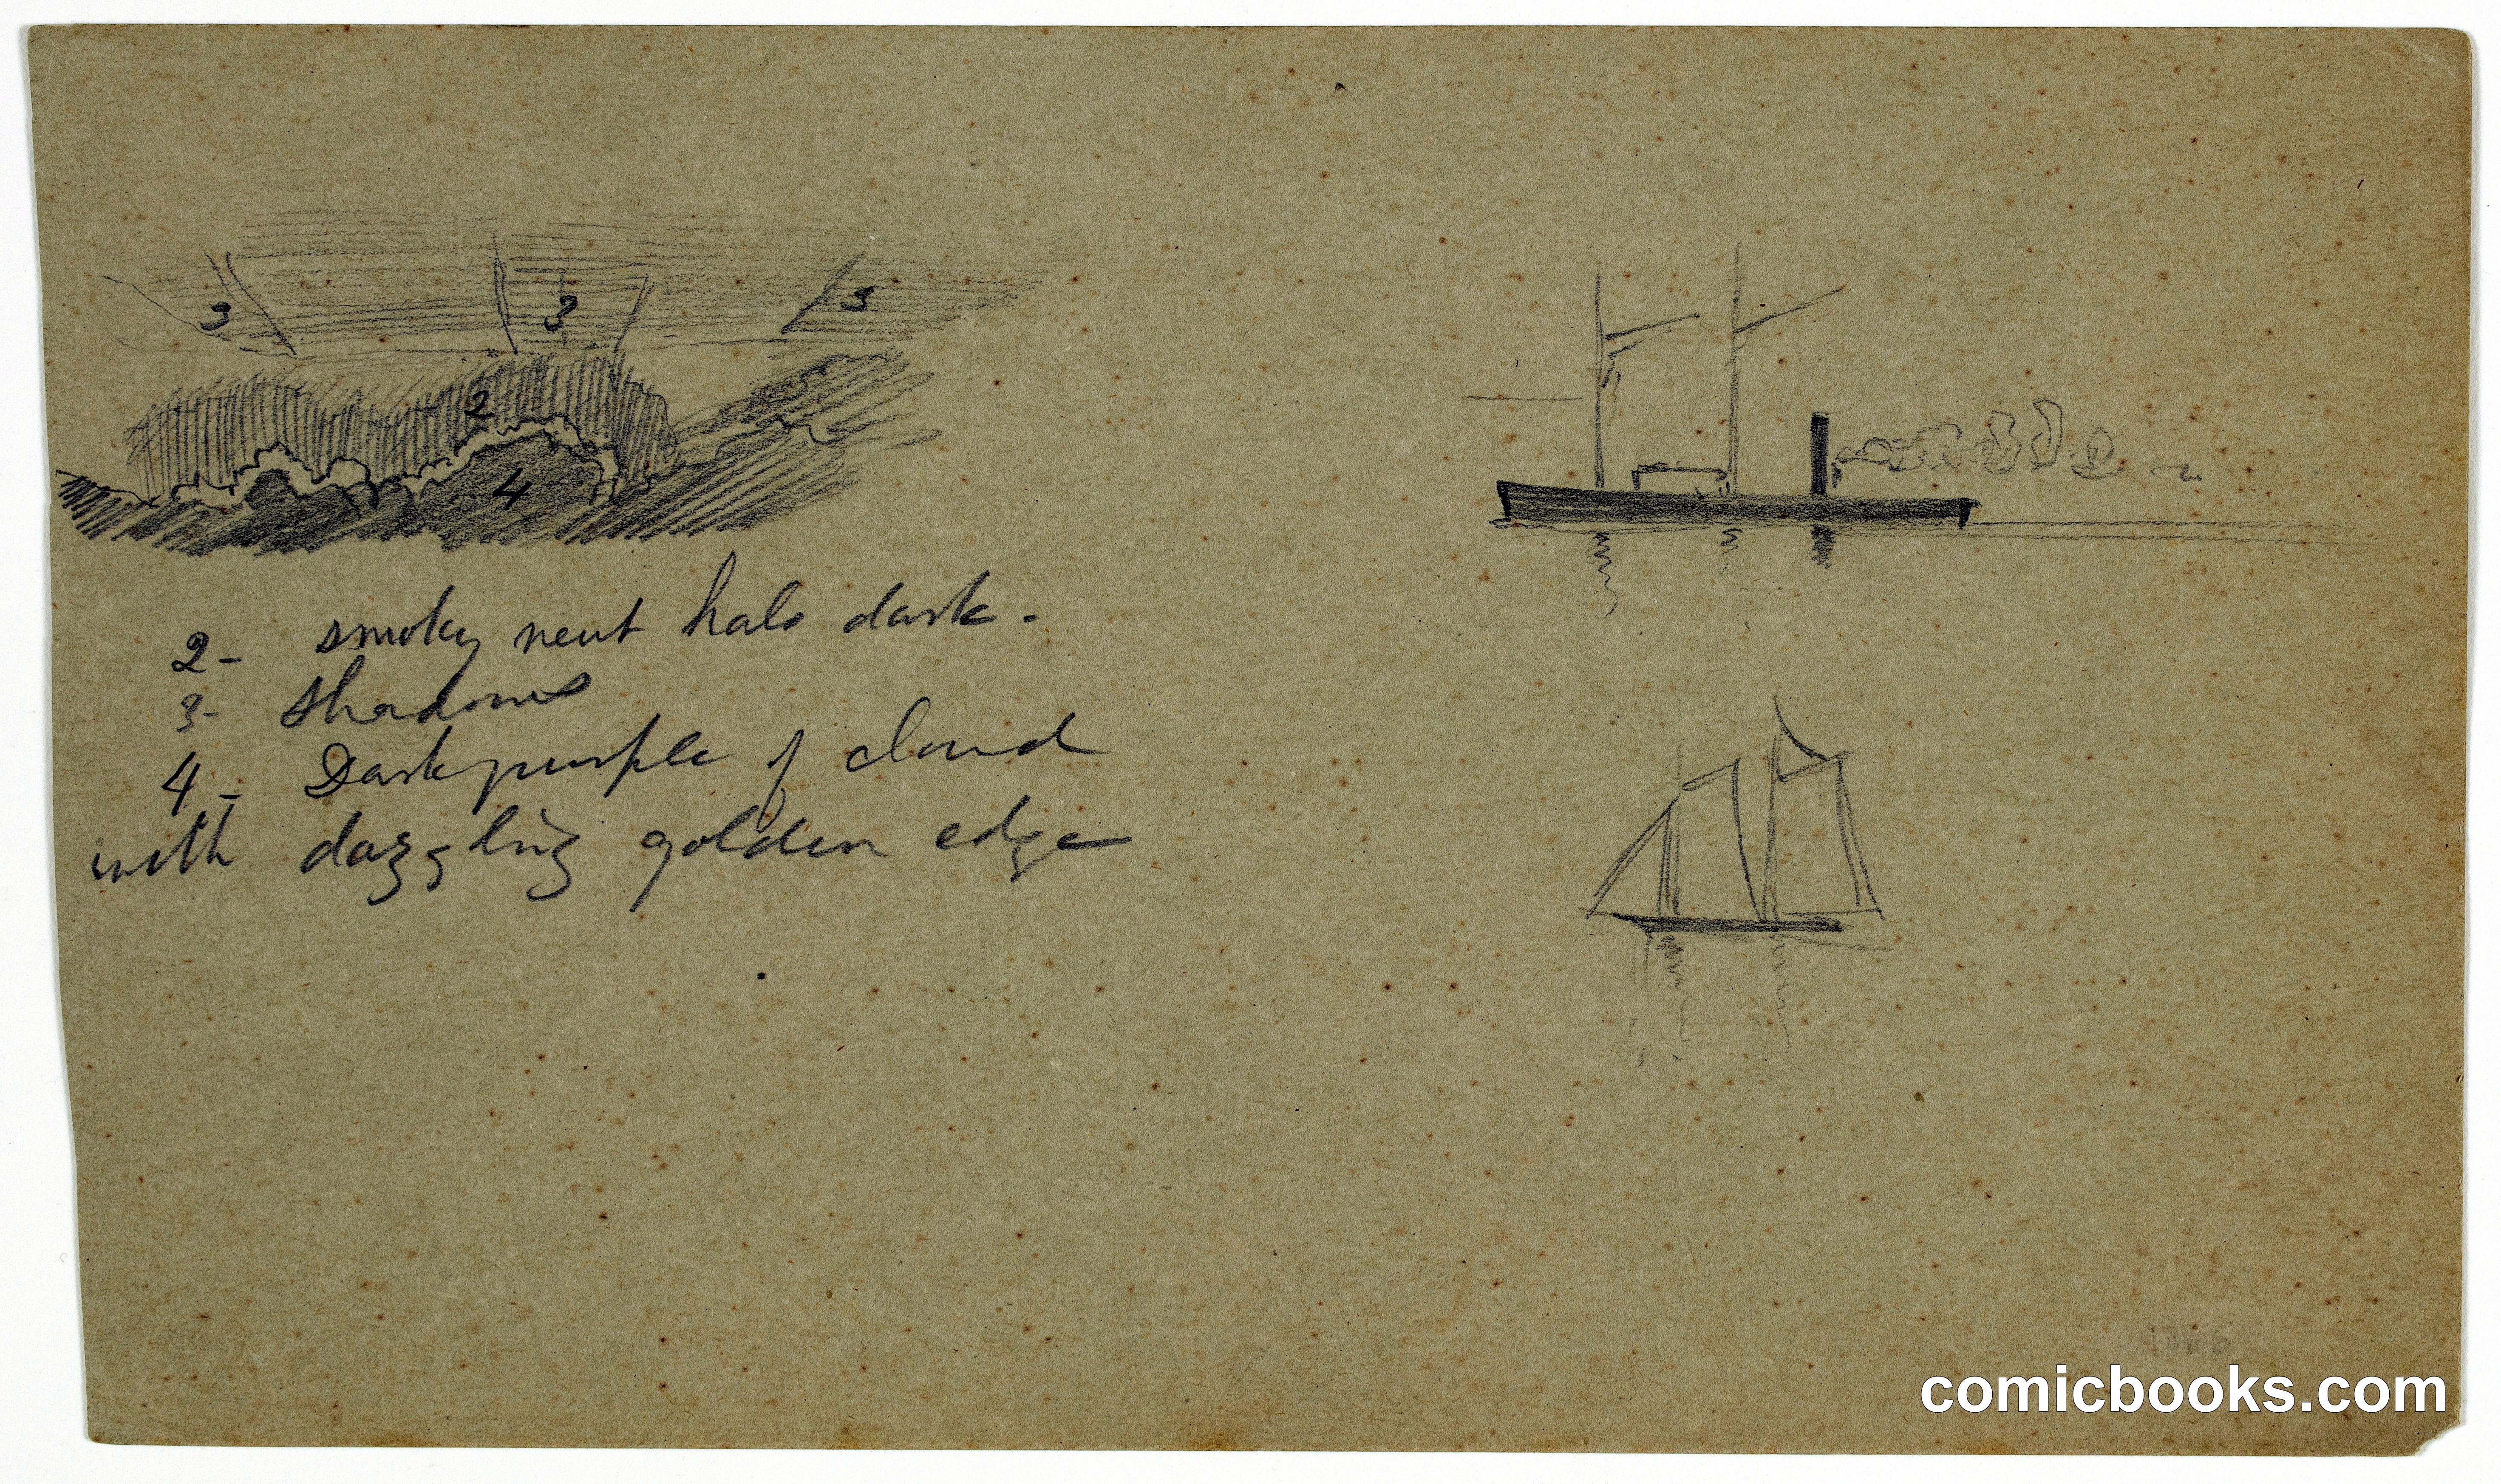 3 3 3
2
4
2- smoky neut halo dark.
3- shadows
4- Dark purple of cloud
with dazzling golden edge
comicbooks.com